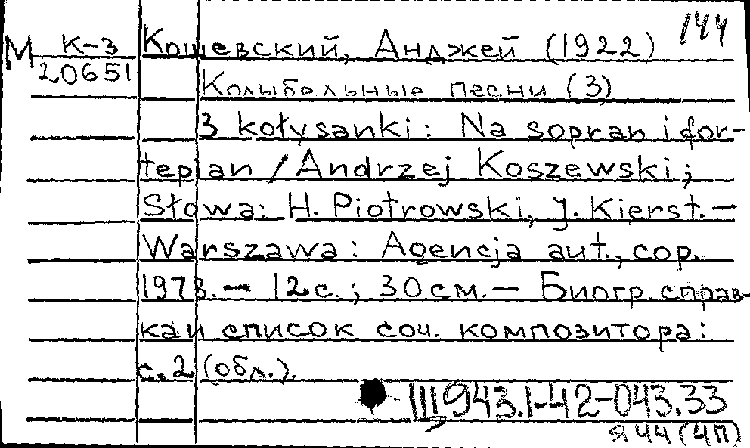 144
М К-3 Кошевский, Анджей (1922)
20651 Колыбельные песни (3)
3 kołysanki: Na sopran i for-
tepian / Andrzej Koszewski;
Słowa: H. Piotrowski, J. Kierst. —
Warszawa: Agencja aut., cop.
1978. — 12 с.; 30 см. — Биогр. справ-
ка и список соч. композитора:
с. 2 (обл.).
Щ943.1-42-043.33
я44(4П)